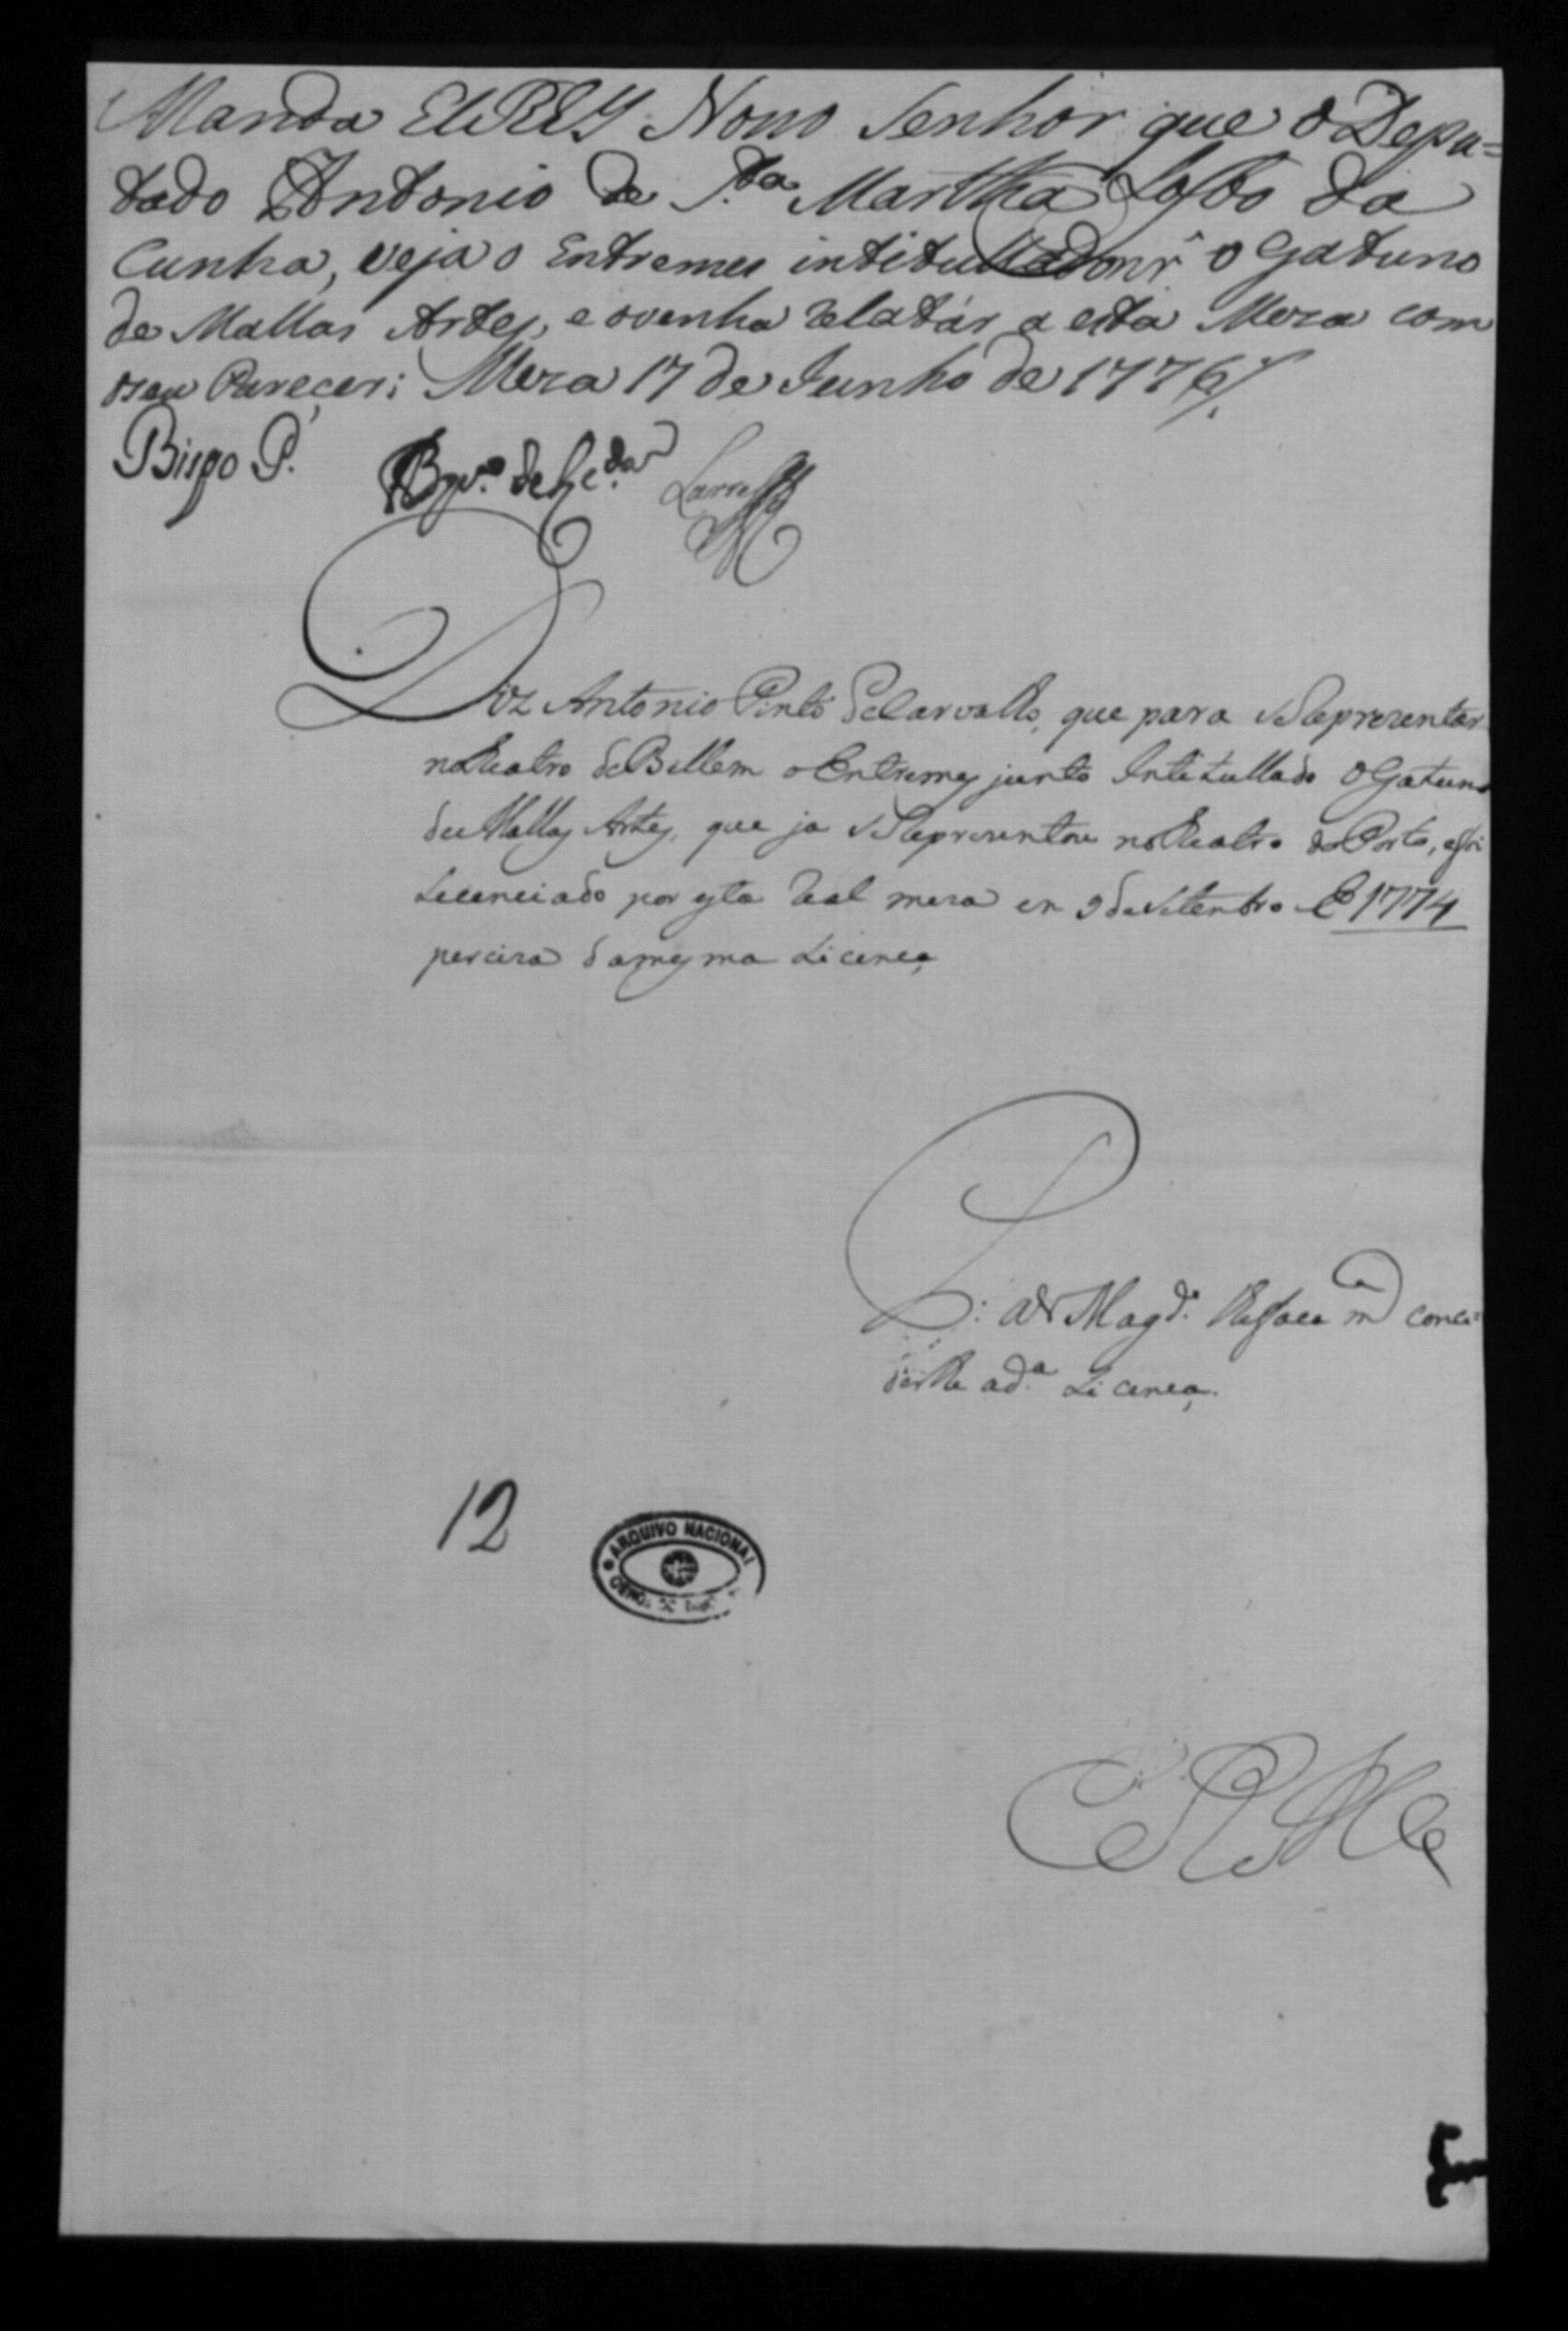 Manda ElREY Nosso Senhor que o Depu=
tado Antonio de S.ta Martha Lobo da
Cunha, veja o Entremes intitullado O Gatuno
de Mallas Artes, e o venha relatár a esta Meza com
o seu Pareçer; Meza 17 de Junho de 1776
Bispo P.
Diz Antonio Pinto de Carvalho, que para se Reprezentar
no Teatro de Bellem o Entremes junto Intitullado O Gatuno
de Mallas Artes, que ja se Reprezentou no Teatro do Porto, e foi
Licenciado por esta Real meza em 9 de Setembro de 1774
perciza da mesma Licença
P. a V Mag.de lhe faça m conce
derlhe a d.a Licença.
ERMe
12
ARQUIVO NACIONAL